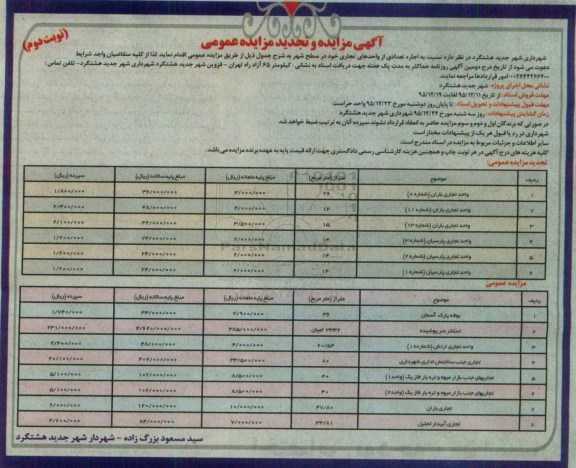 آگهی مزایده و تجدید مزایده عمومی
(نوبت دوم)
شهرداری شهر جدید هشتگرد در نظر دارد نسبت به اجاره تعدادی از واحدهای تجاری خود در سطح شهر به شرح جدول ذیل از طریق مزایده عمومی اقدام نماید. لذا از کلیه متقاضیان واجد شرایط
دعوت می شود از تاریخ درج دومین آگهی روزنامه حداکثر به مدت یک هفته جهت دریافت اسناد به نشانی: کیلومتر ۶۵ آزاد راه تهران - قزوین شهر جدید هشتگرد شهرداری شهر جدید هشتگرد - تلفن تماس:
امور قراردادها مراجعه نمایند.
نشانی محل اجرای پروژه: شهر جدید هشتگرد
مهلت فروش اسناد: از تاریخ ۹۵/۱۲/۱۱ لغایت ۹۵/۱۲/۱۹
مهلت قبول پیشنهادات و تحویل اسناد: تا پایان روز دوشنبه مورخ ۹۵/۱۲/۲۳ واحد حراست
زمان گشایش پیشنهادات: روز سه شنبه مورخ ۹۵/۱۲/۲۴ شهرداری شهر جدید هشتگرد
در صورتی که برندگان اول و دوم و سوم مزایده حاضر به انعقاد قرارداد نشوند سپرده آنان به ترتیب ضبط خواهد شد.
شهرداری در رد یا قبول هر یک از پیشنهادات مختار است
سایر اطلاعات و جزئیات مربوط به مزایده در اسناد مندرج است.
کلیه هزینه های درج آگهی در هر نوبت چاپ و همچنین هزینه کارشناسی رسمی دادگستری جهت ارائه قیمت پایه به عهده برنده مزایده می باشد.
تجدید مزایده عمومی:
ردیف موضوع متراژ (متر مربع) مبلغ پایه ماهانه (ریال) مبلغ پایه سالانه (ریال) سپرده (ریال)
۱ واحد تجاری باران (شماره ۸) ۲۶ ۳/۰۰۰/۰۰۰ ۳۶/۰۰۰/۰۰۰ ۱/۸۰۰/۰۰۰
۲ واحد تجاری باران (شماره ۱۱) ۱۴ ۴/۰۰۰/۰۰۰ ۴۸/۰۰۰/۰۰۰ ۲/۴۰۰/۰۰۰
۳ واحد تجاری باران (شماره ۱۳) ۱۵ ۳/۵۰۰/۰۰۰ ۴۲/۰۰۰/۰۰۰ ۲/۱۰۰/۰۰۰
۴ واحد تجاری پارسیان (شماره ۳) ۱۴ ۲/۰۰۰/۰۰۰ ۲۴/۰۰۰/۰۰۰ ۱/۲۰۰/۰۰۰
۵ واحد تجاری پارسیان (شماره ۲) ۱۴ ۲/۰۰۰/۰۰۰ ۲۴/۰۰۰/۰۰۰ ۱/۲۰۰/۰۰۰
۶ واحد تجاری پارسیان (شماره ۱) ۱۴ ۲/۰۰۰/۰۰۰ ۲۴/۰۰۰/۰۰۰ ۱/۲۰۰/۰۰۰
ParsNamadData
مزایده عمومی
ردیف موضوع متراژ (متر مربع) مبلغ پایه ماهانه (ریال) مبلغ پایه سالانه (ریال) سپرده (ریال)
۱ بوفه پارک آسمان ۳۶ ۲/۹۰۰/۰۰۰ ۱/۷۴۰/۰۰۰
۲ استخر سر پوشیده ۲۳۳۲ اعیان ۳۸۵/۰۰۰/۰۰۰ ۴/۶۲۰/۰۰۰/۰۰۰ ۲۳۱/۰۰۰/۰۰۰
۳ واحد تجاری ارتش (شماره ۱۸) ۲۰/۵۳ ۴/۰۰۰/۰۰۰ ۴۸/۰۰۰/۰۰۰ ۲/۴۰۰/۰۰۰
۴ تجاری جنب ساختمان اداری شهرداری ۸۰ ۳۳/۵۰۰/۰۰۰ ۴۰۲/۰۰۰/۰۰۰ ۲۰/۱۰۰/۰۰۰
۵ تجاریهای جنب بازار میوه و تره بار فاز یک (واحد ۱) ۴۰ ۸/۵۰۰/۰۰۰ ۱۰۲/۰۰۰/۰۰۰ ۵/۱۰۰/۰۰۰
۶ تجاریهای جنب بازار میوه و تره بار فاز یک (واحد ۲) ۴۰ ۸/۵۰۰/۰۰۰ ۱۰۲/۰۰۰/۰۰۰ ۵/۱۰۰/۰۰۰
۷ تجاری باران ۴۷/۸۰ ۱۰/۰۰۰/۰۰۰ ۱۲۰/۰۰۰/۰۰۰ ۶/۰۰۰/۰۰۰
۸ تجاری آبیدار تحلیل ۳۴/۸۱ ۷/۰۰۰/۰۰۰ ۸۴/۰۰۰/۰۰۰ ۴/۲۰۰/۰۰۰
سید مسعود بزرگ زاده - شهردار شهر جدید هشتگرد